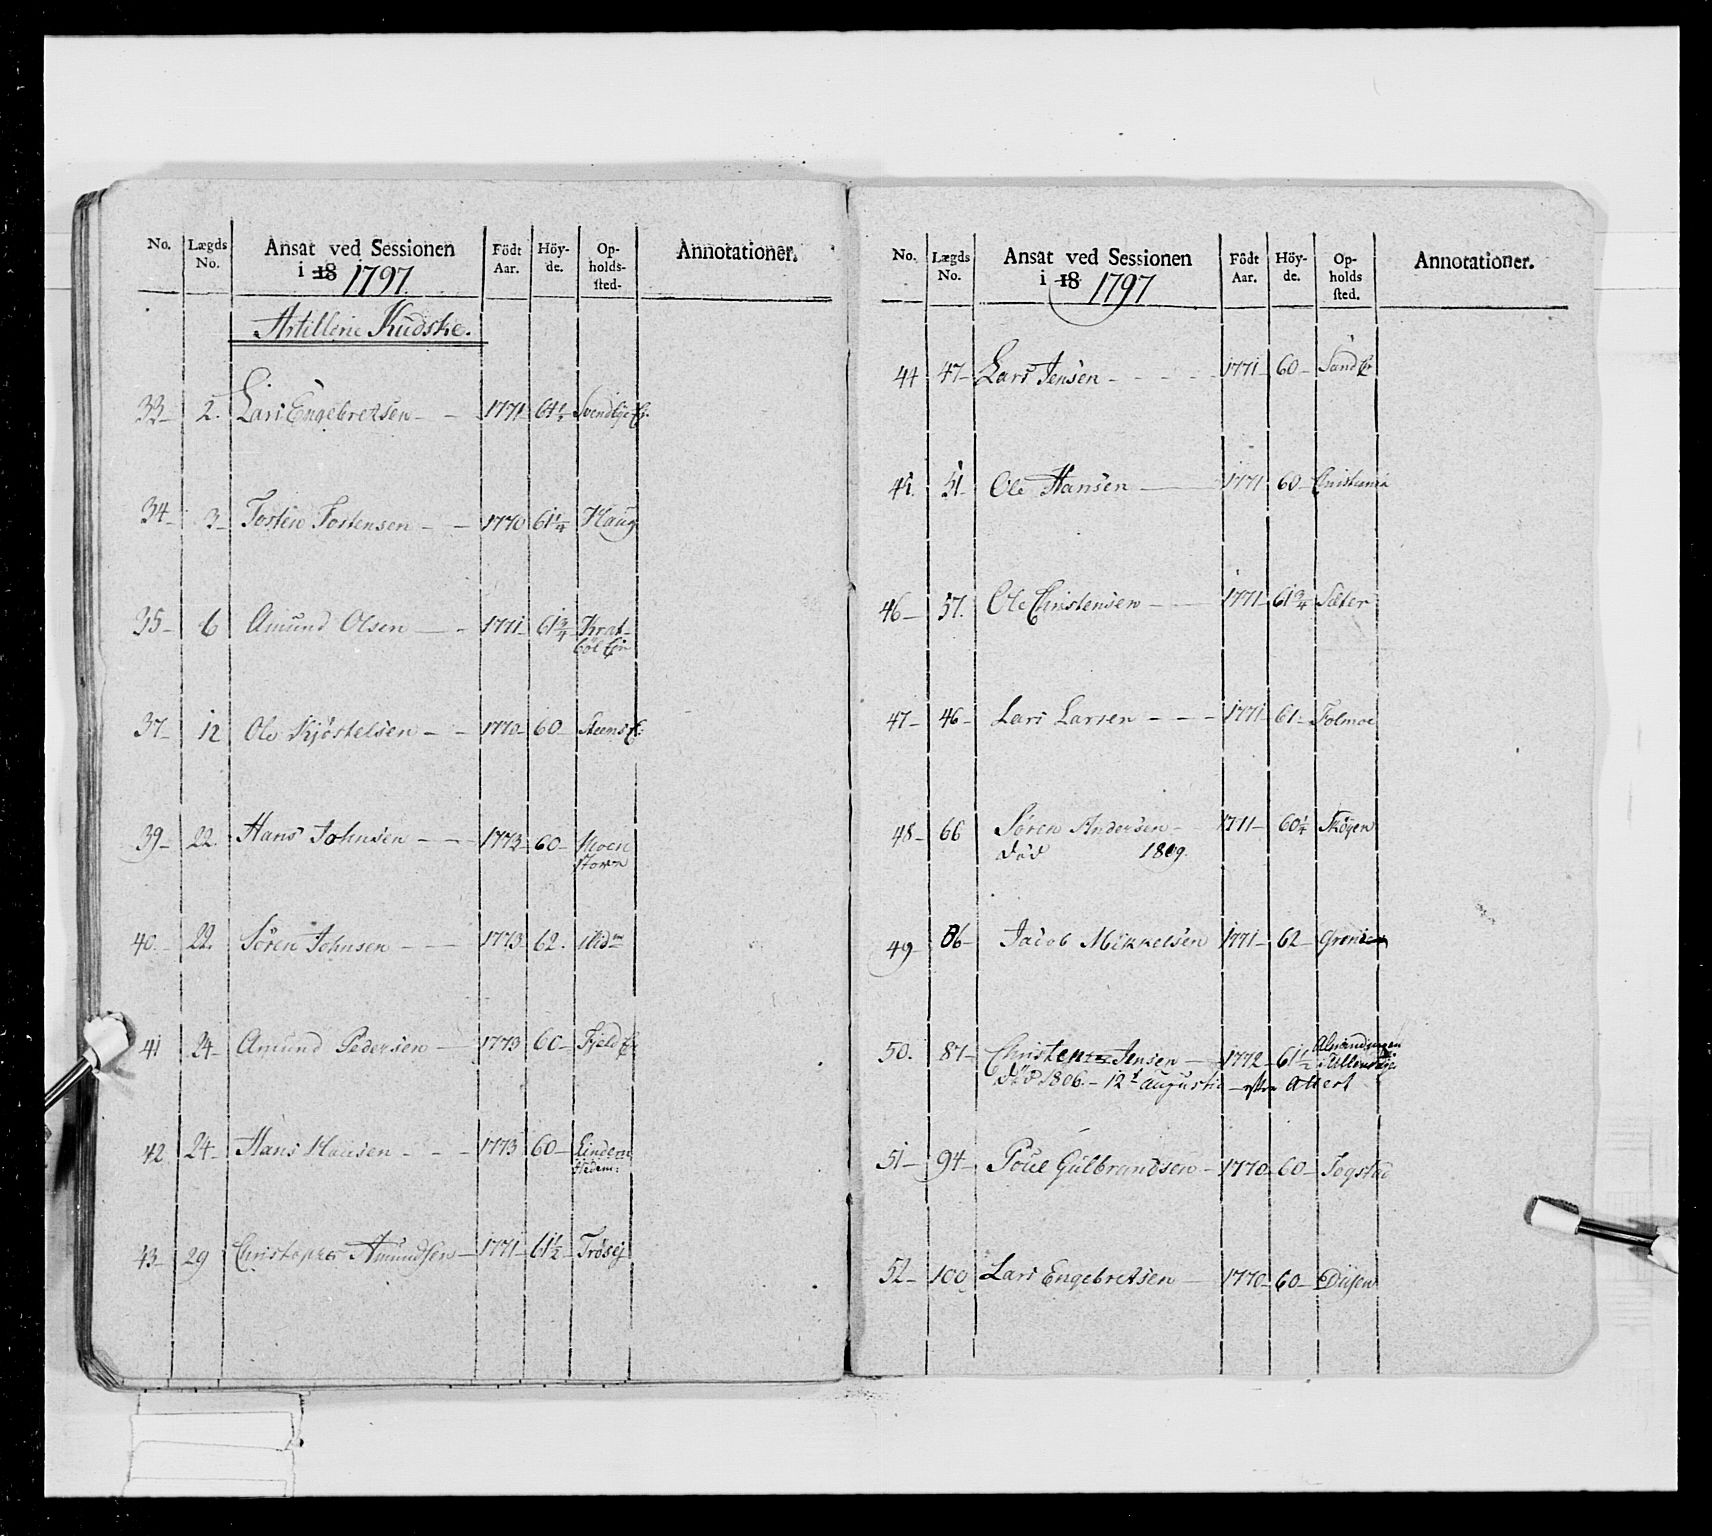 No. Lægds No. Ansat ved Sessionen i 18 1797. Födt Aar. Höyde. Opholdssted. Annotationer.
Artillerie Kudske.
33 2. Lars Engebretsen 1771 64¼
34 3 Tosten Tostensen 1770 61¼ Haug
35 6 Amund Olsen 1771 61¾
37 12 Ole Kjöstelsen 1770 60
39 22. Hans Johnsen 1773 60 Moen
40. 22. Sören Johnsen 1773 62.
41 24 Amund Pedersen 1773 60
42. 24 Hans Hansen 1773 60
43 29 Christopher Amundsen 1771 61½ Trösej
No. Lægds No. Ansat ved Sessionen i 18 1797 Födt Aar. Höyde. Opholds sted. Annotationer.
44 47 Lars Jensen 1771 60
45. 51 Ole Hansen 1771 60 Christiania
46 57. Ole Christensen 1771 61¾ Sæter
47 46 Lars Larsen 1771 61 Tolmoe
48 66 Sören Andersen 1771 60¼ Skögen
död 1809.
49 86 Jacob Mikkelsen 1771 62
50. 87 Christen Jensen 1772 61½
död 1806. 12t augusti Attest
51 94 Poul Gulbrandsen 1770 60 Togstad
52 100 Lars Engebretsen 1770 60